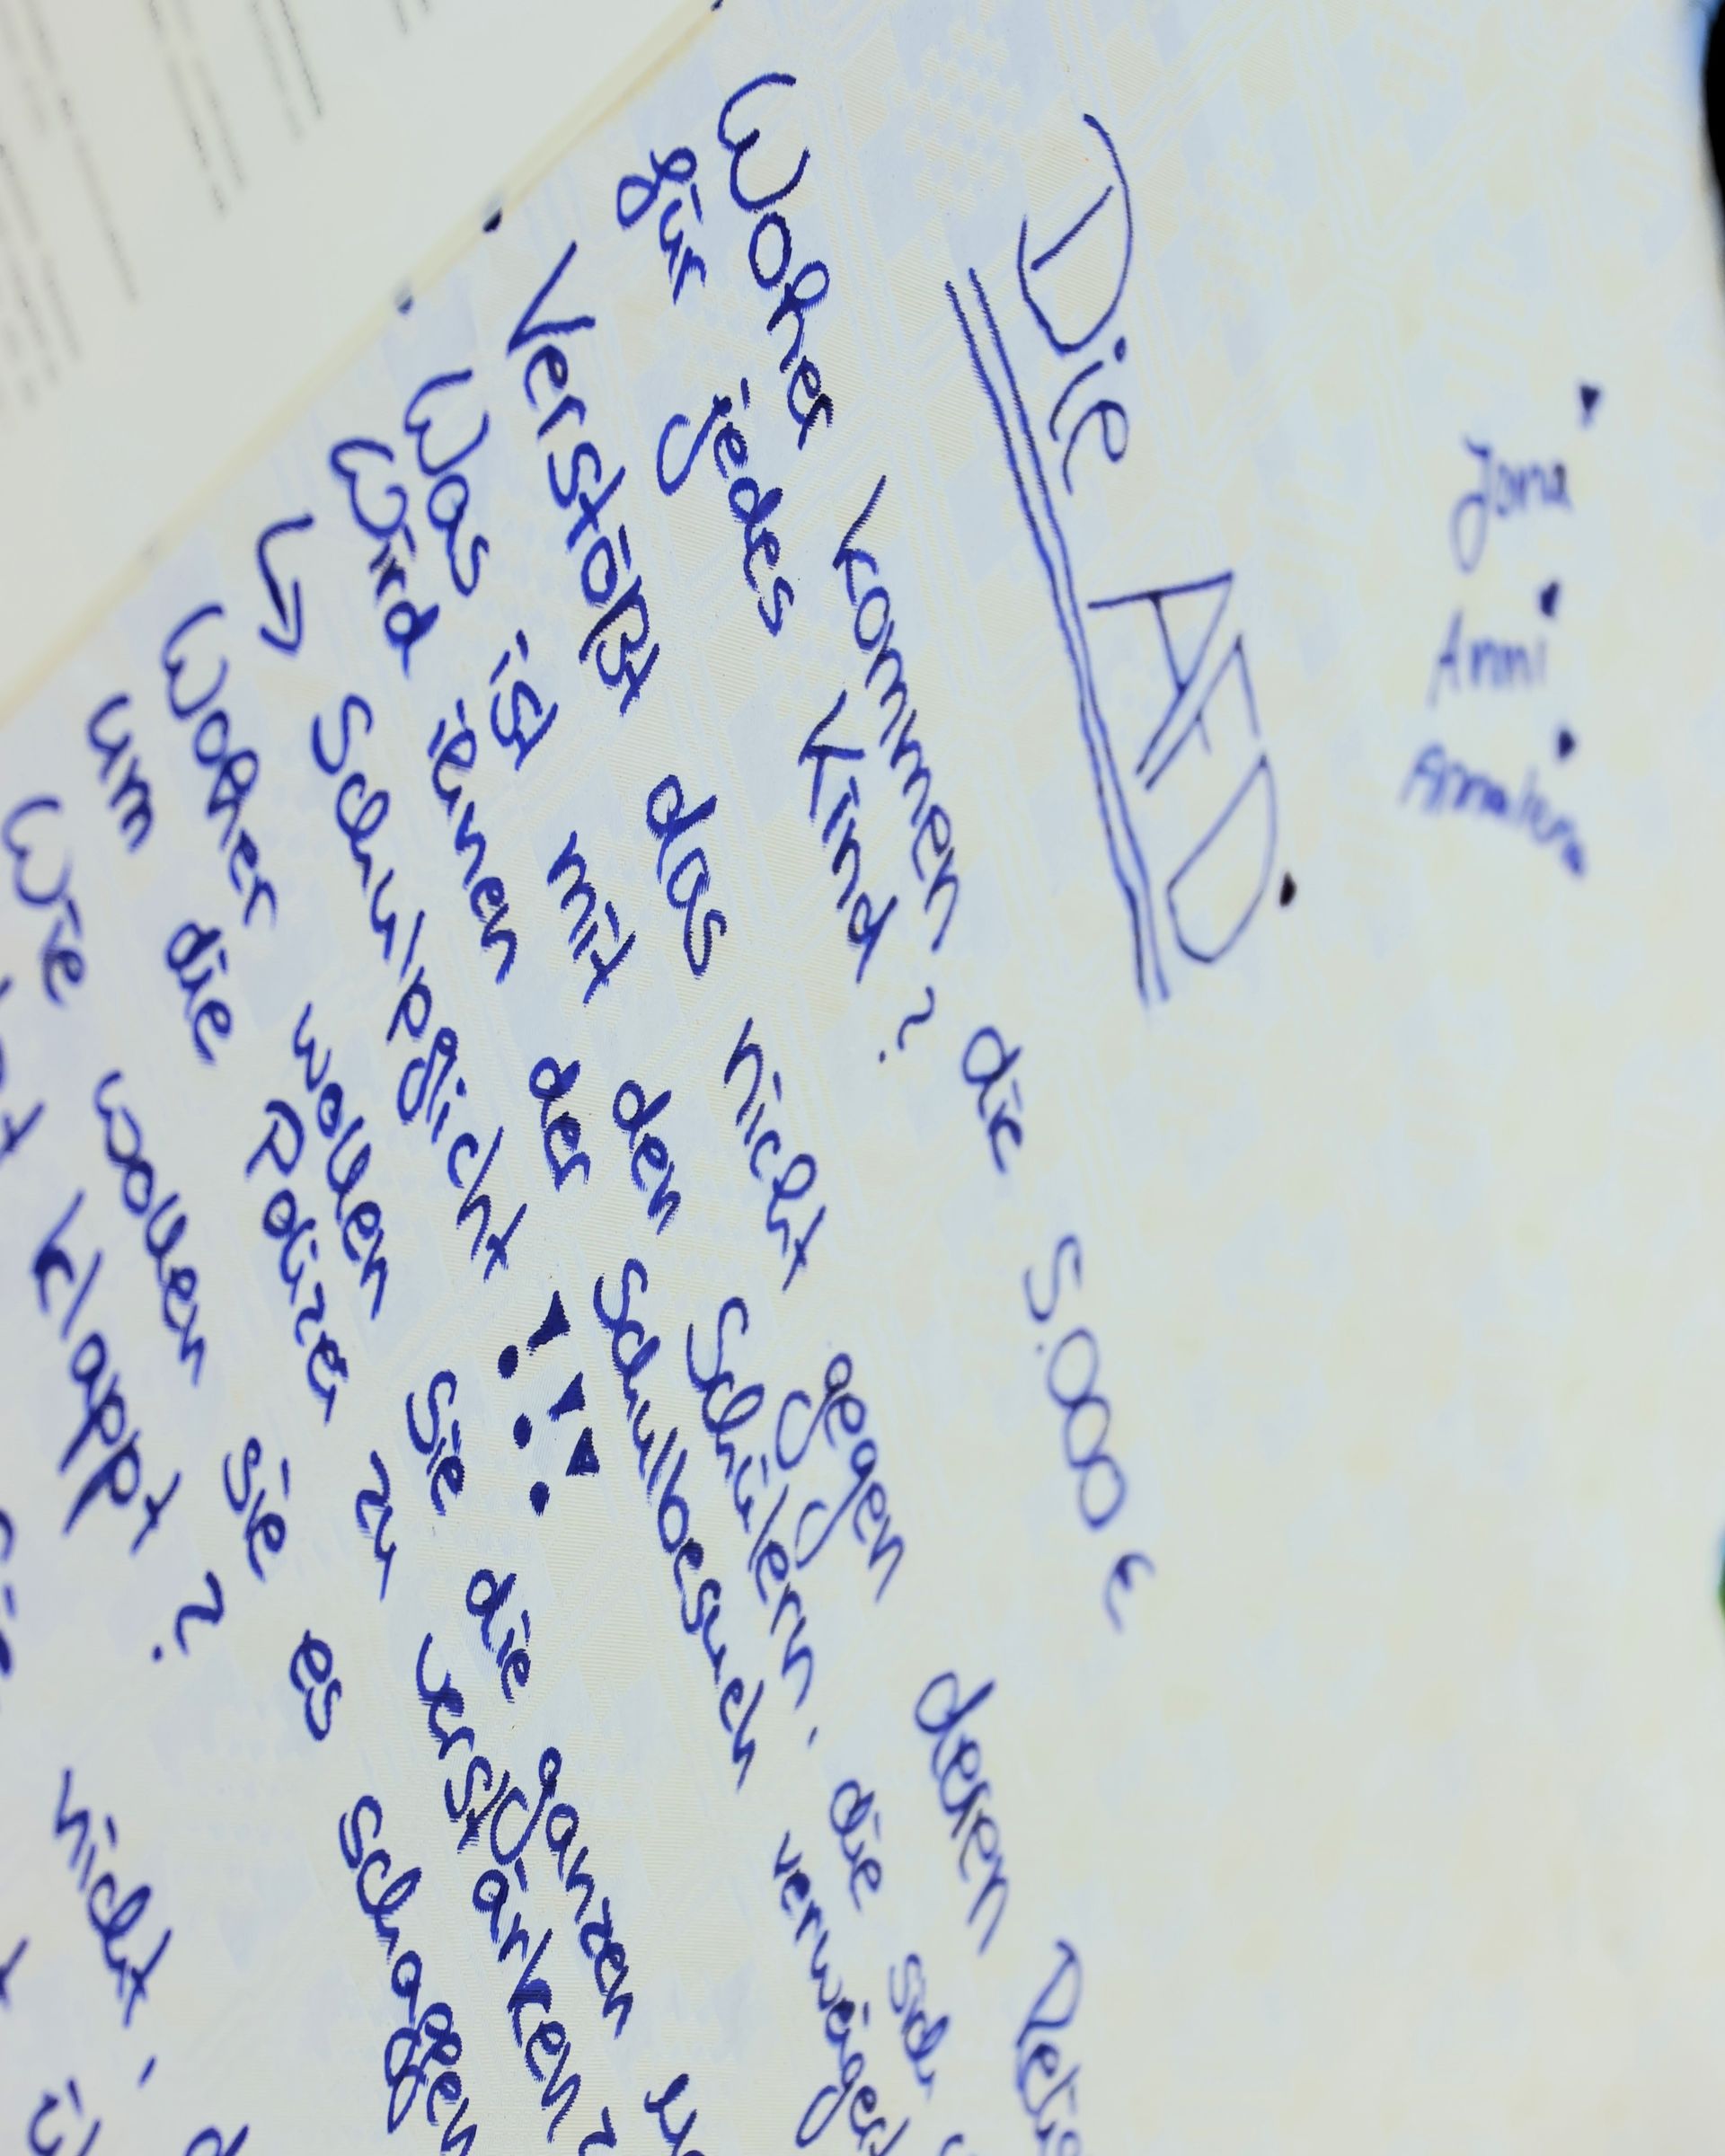 Jona
Anni
Annalena
Die AFD
Woher kommen die 5.000 €
für jedes Kind?
Verstößt das nicht gegen deren
Was ist mit den Schülern, die
Wird ienen der Schulbesuch
↳ Schulpflicht !!!
Woher wollen Sie die ganzen
um die Polizei zu verstärken?
Wie wollen sie es schaffen
klappt? nicht,